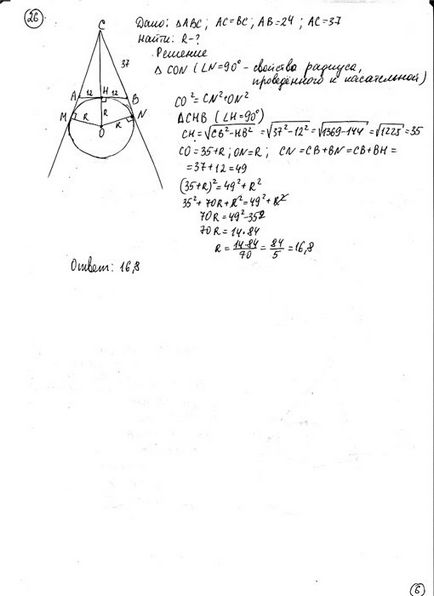 26
Дано: ΔABC; AC=BC; AB=24; AC=37
Найти: R-?
Решение
Δ CON (∠N=90° - свойство радиуса,
проведённого к касательной)
CO²=CN²+ON²
ΔCHB (∠H=90°)
CH=√CB²-HB² =√37²-12² =√1369-144 =√1225=35
CO=35+R; ON=R; CN=CB+BN=CB+BH=
=37+12=49
(35+R)²=49²+R²
35²+70R+R²=49²+R²
70R=49²-35²
70R=14·84
R=14·84/70=84/5=16,8
Ответ: 16,8
C
37
A 12 H 12 B
M R R R N
O
6